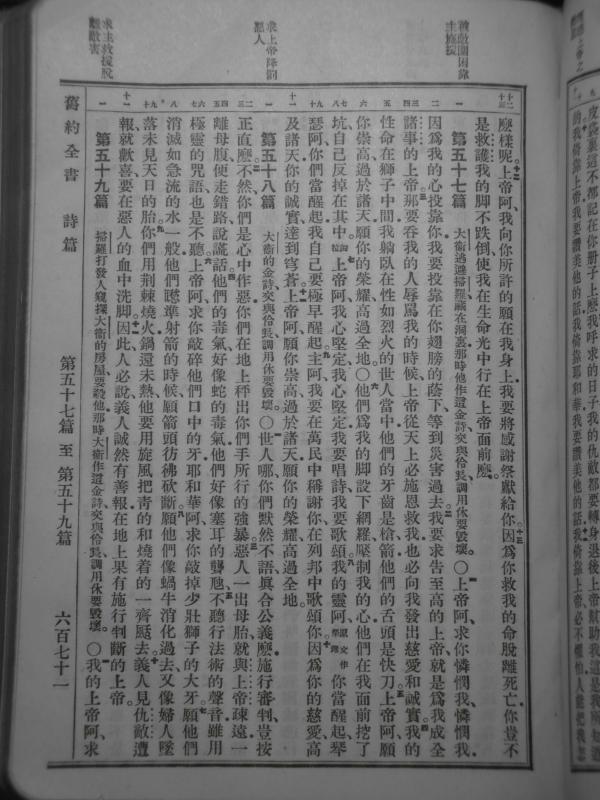 皮袋裏這不都記在你册子上麼我呼求的日子我的仇敵都要轉身退後上帝幫助我這是我所知道
的我倚靠上帝我要讚美他的話我倚靠耶和華我要讚美他的話我倚靠上帝必不懼怕人能把我怎
被敵圍困靠主應援
麼樣呢上帝阿我向你所許的願在我身上我要將感謝祭獻給你因爲你救我的命脫離死亡你豈不
是救護我的脚不跌倒使我在生命光中行在上帝面前麼
第五十七篇 大衞逃避掃羅藏在洞裏那時他作這金詩交與伶長調用休要毀壞○上帝阿求你憐憫我憐憫我
因爲我的心投靠你我要投靠在你翅膀的蔭下等到災害過去我要求告至高的上帝就是爲我成全
諸事的上帝那要吞我的人辱罵我的時候上帝從天上必施恩救我也必向我發出慈愛和誠實我的
性命在獅子中間我躺臥在性如烈火的世人當中他們的牙齒是槍箭他們的舌頭是快刀上帝阿願
你崇高過於諸天願你的榮耀高過全地○他們爲我的脚設下網羅壓制我的心他們在我面前挖了
坑自己反掉在其中細拉上帝阿我心堅定我心堅定我要唱詩我要歌頌我的靈阿原文作榮耀你當醒起琴
瑟阿你們當醒起我自己要極早醒起主阿我要在萬民中稱謝你在列邦中歌頌你因爲你的慈愛高
及諸天你的誠實達到穹蒼上帝阿願你崇高過於諸天願你的榮耀高過全地
求上帝降罰惡人
第五十八篇 大衞的金詩交與伶長調用休要毀壞○世人哪你們默然不語眞合公義麼施行審判豈按
正直麼不然你們是心中作惡你們在地上秤出你們手所行的強暴惡人一出母胎就與上帝疎遠一
離母腹便走錯路說謊話他們的毒氣好像蛇的毒氣他們好像塞耳的聾虺不聽行法術的聲音雖用
極靈的咒語也是不聽上帝阿求你敲碎他們口中的牙耶和華阿求你敲掉少壯獅子的大牙願他們
消滅如急流的水一般他們瞄準射箭的時候願箭頭彷彿砍斷願他們像蝸牛消化過去又像婦人墜
落未見天日的胎你們用荆棘燒火鍋還未熱他要用旋風把靑的和燒着的一齊颳去義人見仇敵遭
報就歡喜要在惡人的血中洗脚因此人必說義人誠然有善報在地上果有施行判斷的上帝
求主救援脫離敵害
第五十九篇 掃羅打發人窺探大衞的房屋要殺他那時大衞作這金詩交與伶長調用休要毀壞○我的上帝阿求
舊約全書 詩篇 第五十七篇 至 第五十九篇 六百七十一